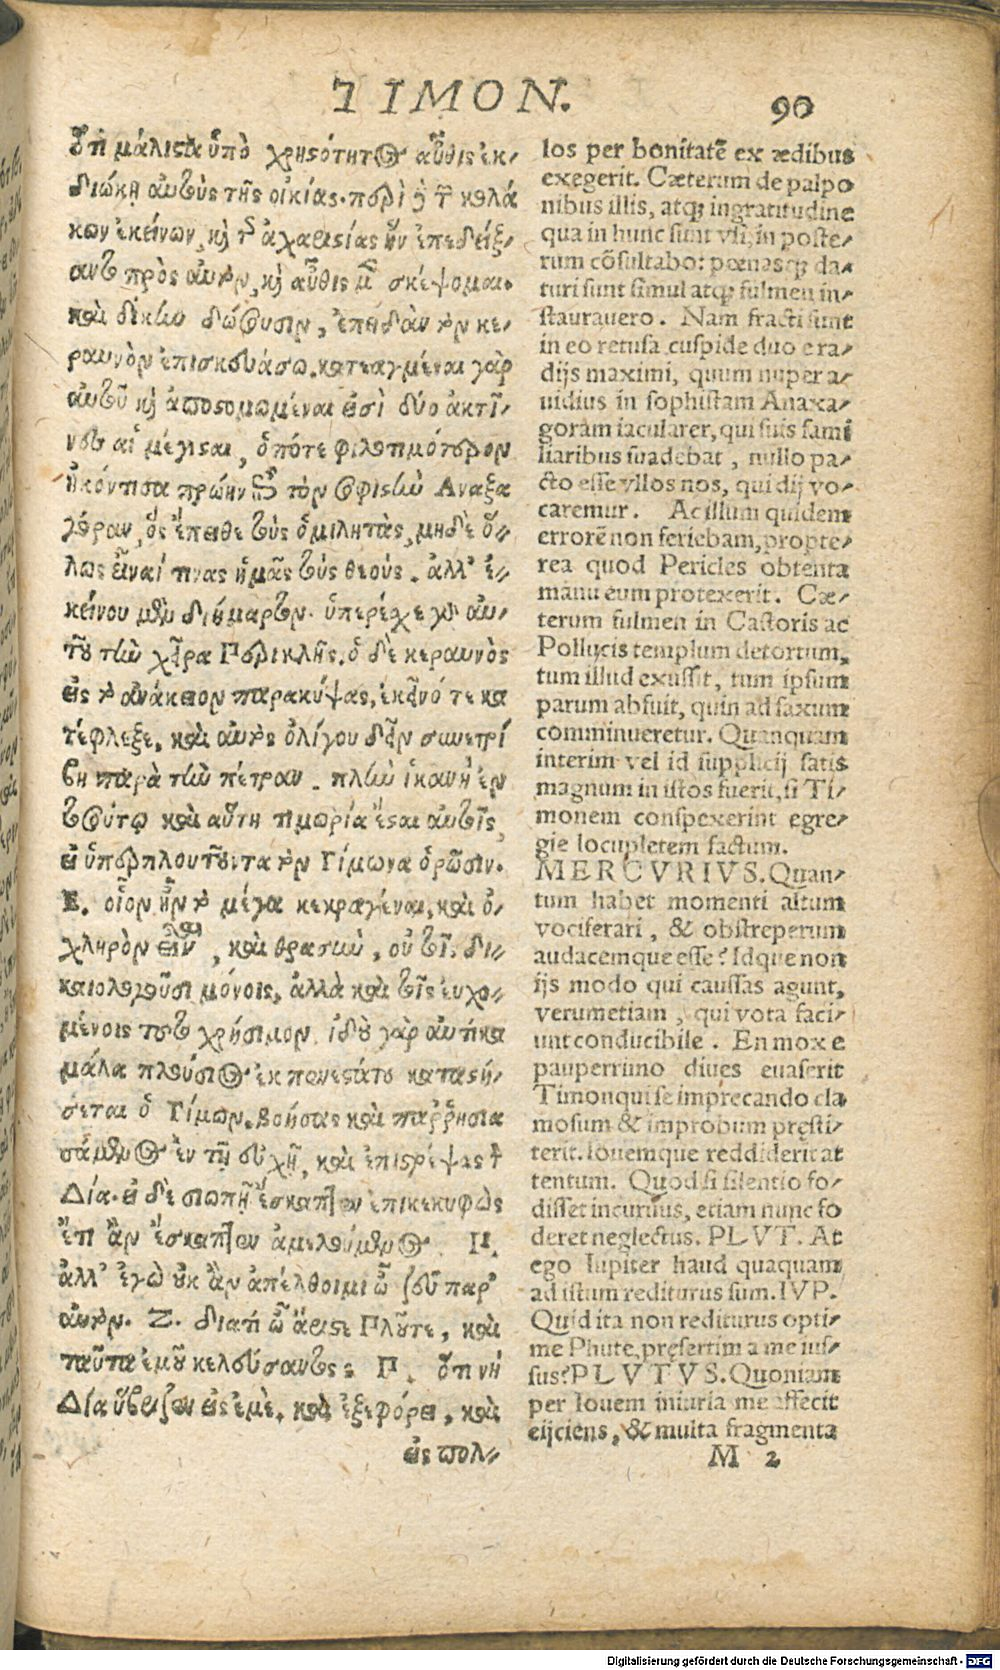 TIMON. 90
ὅτι μάλιστα ὑπὸ χρηστότητος αὖθις ἐκ-
διώκῃ αὐτοὺς τῆς οἰκίας. περὶ δὲ τῶν κολά
κων ἐκείνων, καὶ τῆς ἀχαριστίας ἣν ἐπεδείξ-
αντο πρὸς αὐτὸν, καὶ αὖθις μὲν σκέψομαι.
καὶ δίκην δώσουσιν, ἐπειδὰν τὸν κε-
ραυνὸν ἐπισκευάσω. κατεαγμέναι γὰρ
αὐτοῦ καὶ ἀποστομωμέναι εἰσὶ δύο ἀκτῖ-
νες αἱ μέγισται, ὁπότε φιλοτιμότερον
ἠκόντισα πρώην ἐπὶ τὸν σοφιστὴν Αναξα
γόραν, ὃς ἔπειθε τοὺς ὁμιλητὰς, μηδὲ ὅ-
λως εἶναί τινας ἡμᾶς τοὺς θεούς. ἀλλ' ἐ-
κείνου μὲν διήμαρτον. ὑπερέχε γὰρ αὐ-
τοῦ τὴν χεῖρα Περικλῆς. ὁ δὲ κεραυνὸς
εἰς τὸ ἀνάκειον παρακύψας, ἐκεῖνό τε κα
τέφλεξε, καὶ αὐτὸς ὀλίγου δεῖν συνετρί
βη παρὰ τὴν πέτραν. πλὴν ἱκανὴ ἐν
τοσούτῳ καὶ αὕτη τιμωρία ἔσται αὐτοῖς,
εἰ ὑπερπλουτοῦντα τὸν Τίμωνα ὁρῶσιν.
Ε. οἷον ἦν τὸ μέγα κεκραγέναι, καὶ ὀ-
χληρὸν εἶναι, καὶ θρασὺν, οὐ τοῖς δι-
καιολογοῦσι μόνοις, ἀλλὰ καὶ τοῖς εὐχο-
μένοις τοῦτο χρήσιμον. ἰδοὺ γὰρ αὐτίκα
μάλα πλούσιος ἐκ πενεστάτου καταστή-
σεται ὁ Τίμων. βοήσας καὶ παῤῥησια
σάμενος ἐν τῇ εὐχῇ, καὶ ἐπιστρέψας τὸν
Δία. εἰ δὲ σιωπῇ ἔσκαπτεν ἐπικεκυφὼς
ἔτι ἂν ἔσκαπτεν ἀμελούμενος. Π.
ἀλλ' ἐγὼ οὐκ ἂν ἀπέλθοιμι ὦ ζεῦ παρ'
αὐτόν. Ζ. διατί ὦ ἄριστε Πλοῦτε, καὶ
ταῦτα ἐμοῦ κελεύσαντος; Π. ὅτι νὴ
Δία ὕβριζεν εἰς ἐμὲ, καὶ ἐξεφόρει, καὶ
εἰς πολ-
los per bonitatē ex ædibus
exegerit. Cæterum de palpo
nibus illis, atq; ingratitudine
qua in hunc sunt vsi, in poste-
rum cōsultabo: pœnasq; da-
turi sunt simul atq; fulmen in-
staurauero. Nam fracti sunt
in eo retusa cuspide duo e ra-
dijs maximi, quum nuper a-
uidius in sophistam Anaxa-
goram iacularer, qui suis fami
liaribus suadebat, nullo pa-
cto esse vllos nos, qui dij vo-
caremur. Ac illum quidem
errorē non feriebam, propte-
rea quod Pericles obtenta
manu eum protexerit. Cæ-
terum fulmen in Castoris ac
Pollucis templum detortum,
tum illud exussit, tum ipsum
parum absuit, quin ad saxum
comminueretur. Quanquam
interim vel id supplicij satis
magnum in istos fuerit, si Ti-
monem conspexerint egre-
gie locupletem factum.
MERCVRIVS. Quan-
tum habet momenti altum
vociferari, & obstreperum
audacemque esse? Idque non
ijs modo qui caussas agunt,
verumetiam, qui vota faci-
unt conducibile. En mox e
pauperrimo diues euaserit
Timon qui se imprecando cla
mosum & improbum præsti-
terit. Iouemque reddiderit at
tentum. Quod si silentio fo-
disset incuruus, etiam nunc fo
deret neglectus. PLVT. At
ego Iupiter haud quaquam
ad istum rediturus sum. IVP.
Quid ita non rediturus opti-
me Phute, præsertim a me ius-
sus? PLVTVS. Quoniam
per Iouem iniuria me affecit
eijciens, & multa fragmenta
M 2
Digitalisierung gefördert durch die Deutsche Forschungsgemeinschaft - DFG